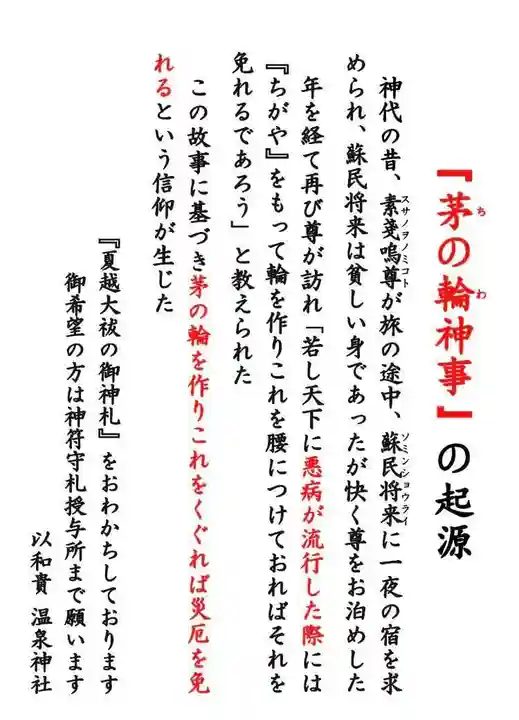 『茅の輪神事』の起源
ち
わ
神代の昔、素戔嗚尊が旅の途中、蘇民将来に一夜の宿を求
スサノヲノミコト
ソミンショウライ
められ、蘇民将来は貧しい身であったが快く尊をお泊めした
年を経て再び尊が訪れ「若し天下に悪病が流行した際には
『ちがや』をもって輪を作りこれを腰につけておればそれを
免れるであろう」と教えられた
この故事に基づき茅の輪を作りこれをくぐれば災厄を免
れるという信仰が生じた
『夏越大祓の御神札』をおわかちしております
御希望の方は神符守札授与所まで願います
以和貴 温泉神社